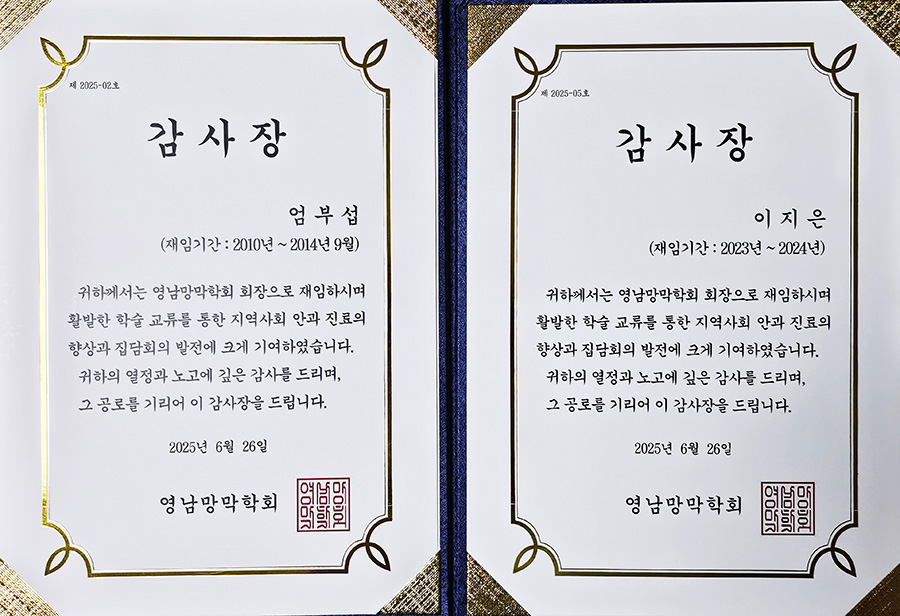 제 2025-02호
감사장
엄부섭
(재임기간 : 2010년 ~ 2014년 9월)
귀하께서는 영남망막학회 회장으로 재임하시며
활발한 학술 교류를 통한 지역사회 안과 진료의
향상과 집담회의 발전에 크게 기여하였습니다.
귀하의 열정과 노고에 깊은 감사를 드리며,
그 공로를 기리어 이 감사장을 드립니다.
2025년 6월 26일
영남망막학회
제 2025-05호
감사장
이지은
(재임기간 : 2023년 ~ 2024년)
귀하께서는 영남망막학회 회장으로 재임하시며
활발한 학술 교류를 통한 지역사회 안과 진료의
향상과 집담회의 발전에 크게 기여하였습니다.
귀하의 열정과 노고에 깊은 감사를 드리며,
그 공로를 기리어 이 감사장을 드립니다.
2025년 6월 26일
영남망막학회